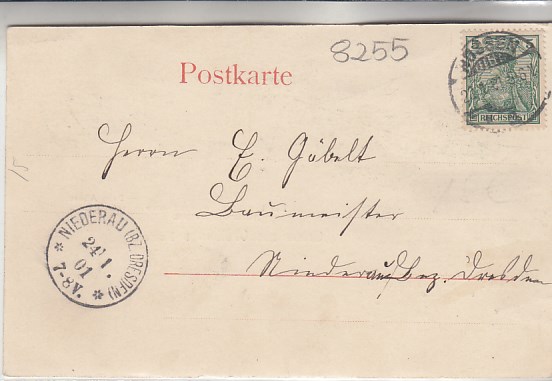 8255
Postkarte
NOSSEN
REICHSPOST
Herrn E. Göbelt
Baumeister
Niederau Bez. Dresden
* NIEDERAU (BZ. DRESDEN) *
24 1.
01
7-8V.